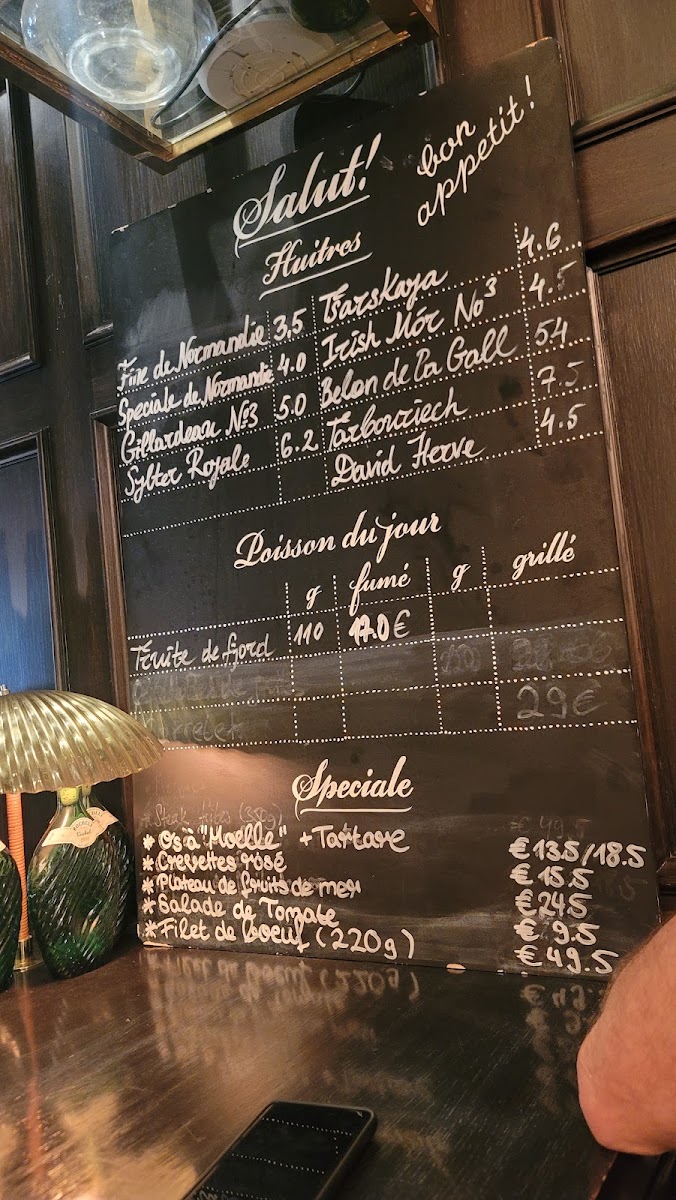 Salut!
bon
appetit!
Huitres
Fine de Normandie 3,5
Speciale de Normandie 4.0
Gillardeau No3 5.0
Sylter Royale 6.2
Tsarskaya 4.6
Irish Mór No3 4.5
Belon de la Gall 54
Tarbouriech 7.5
David Herve 4.5
Poisson du jour
g fumé g grillé
Truite de fjord 110 17.0€
29€
Speciale
Steak frites (350g) € 49.5
* Os à "Moelle" + Tartare € 13.5/18.5
* Crevettes rosé € 15.5
* Plateau de fruits de mer € 24.5
* Salade de Tomate € 9.5
* Filet de boeuf (220g) € 49.5